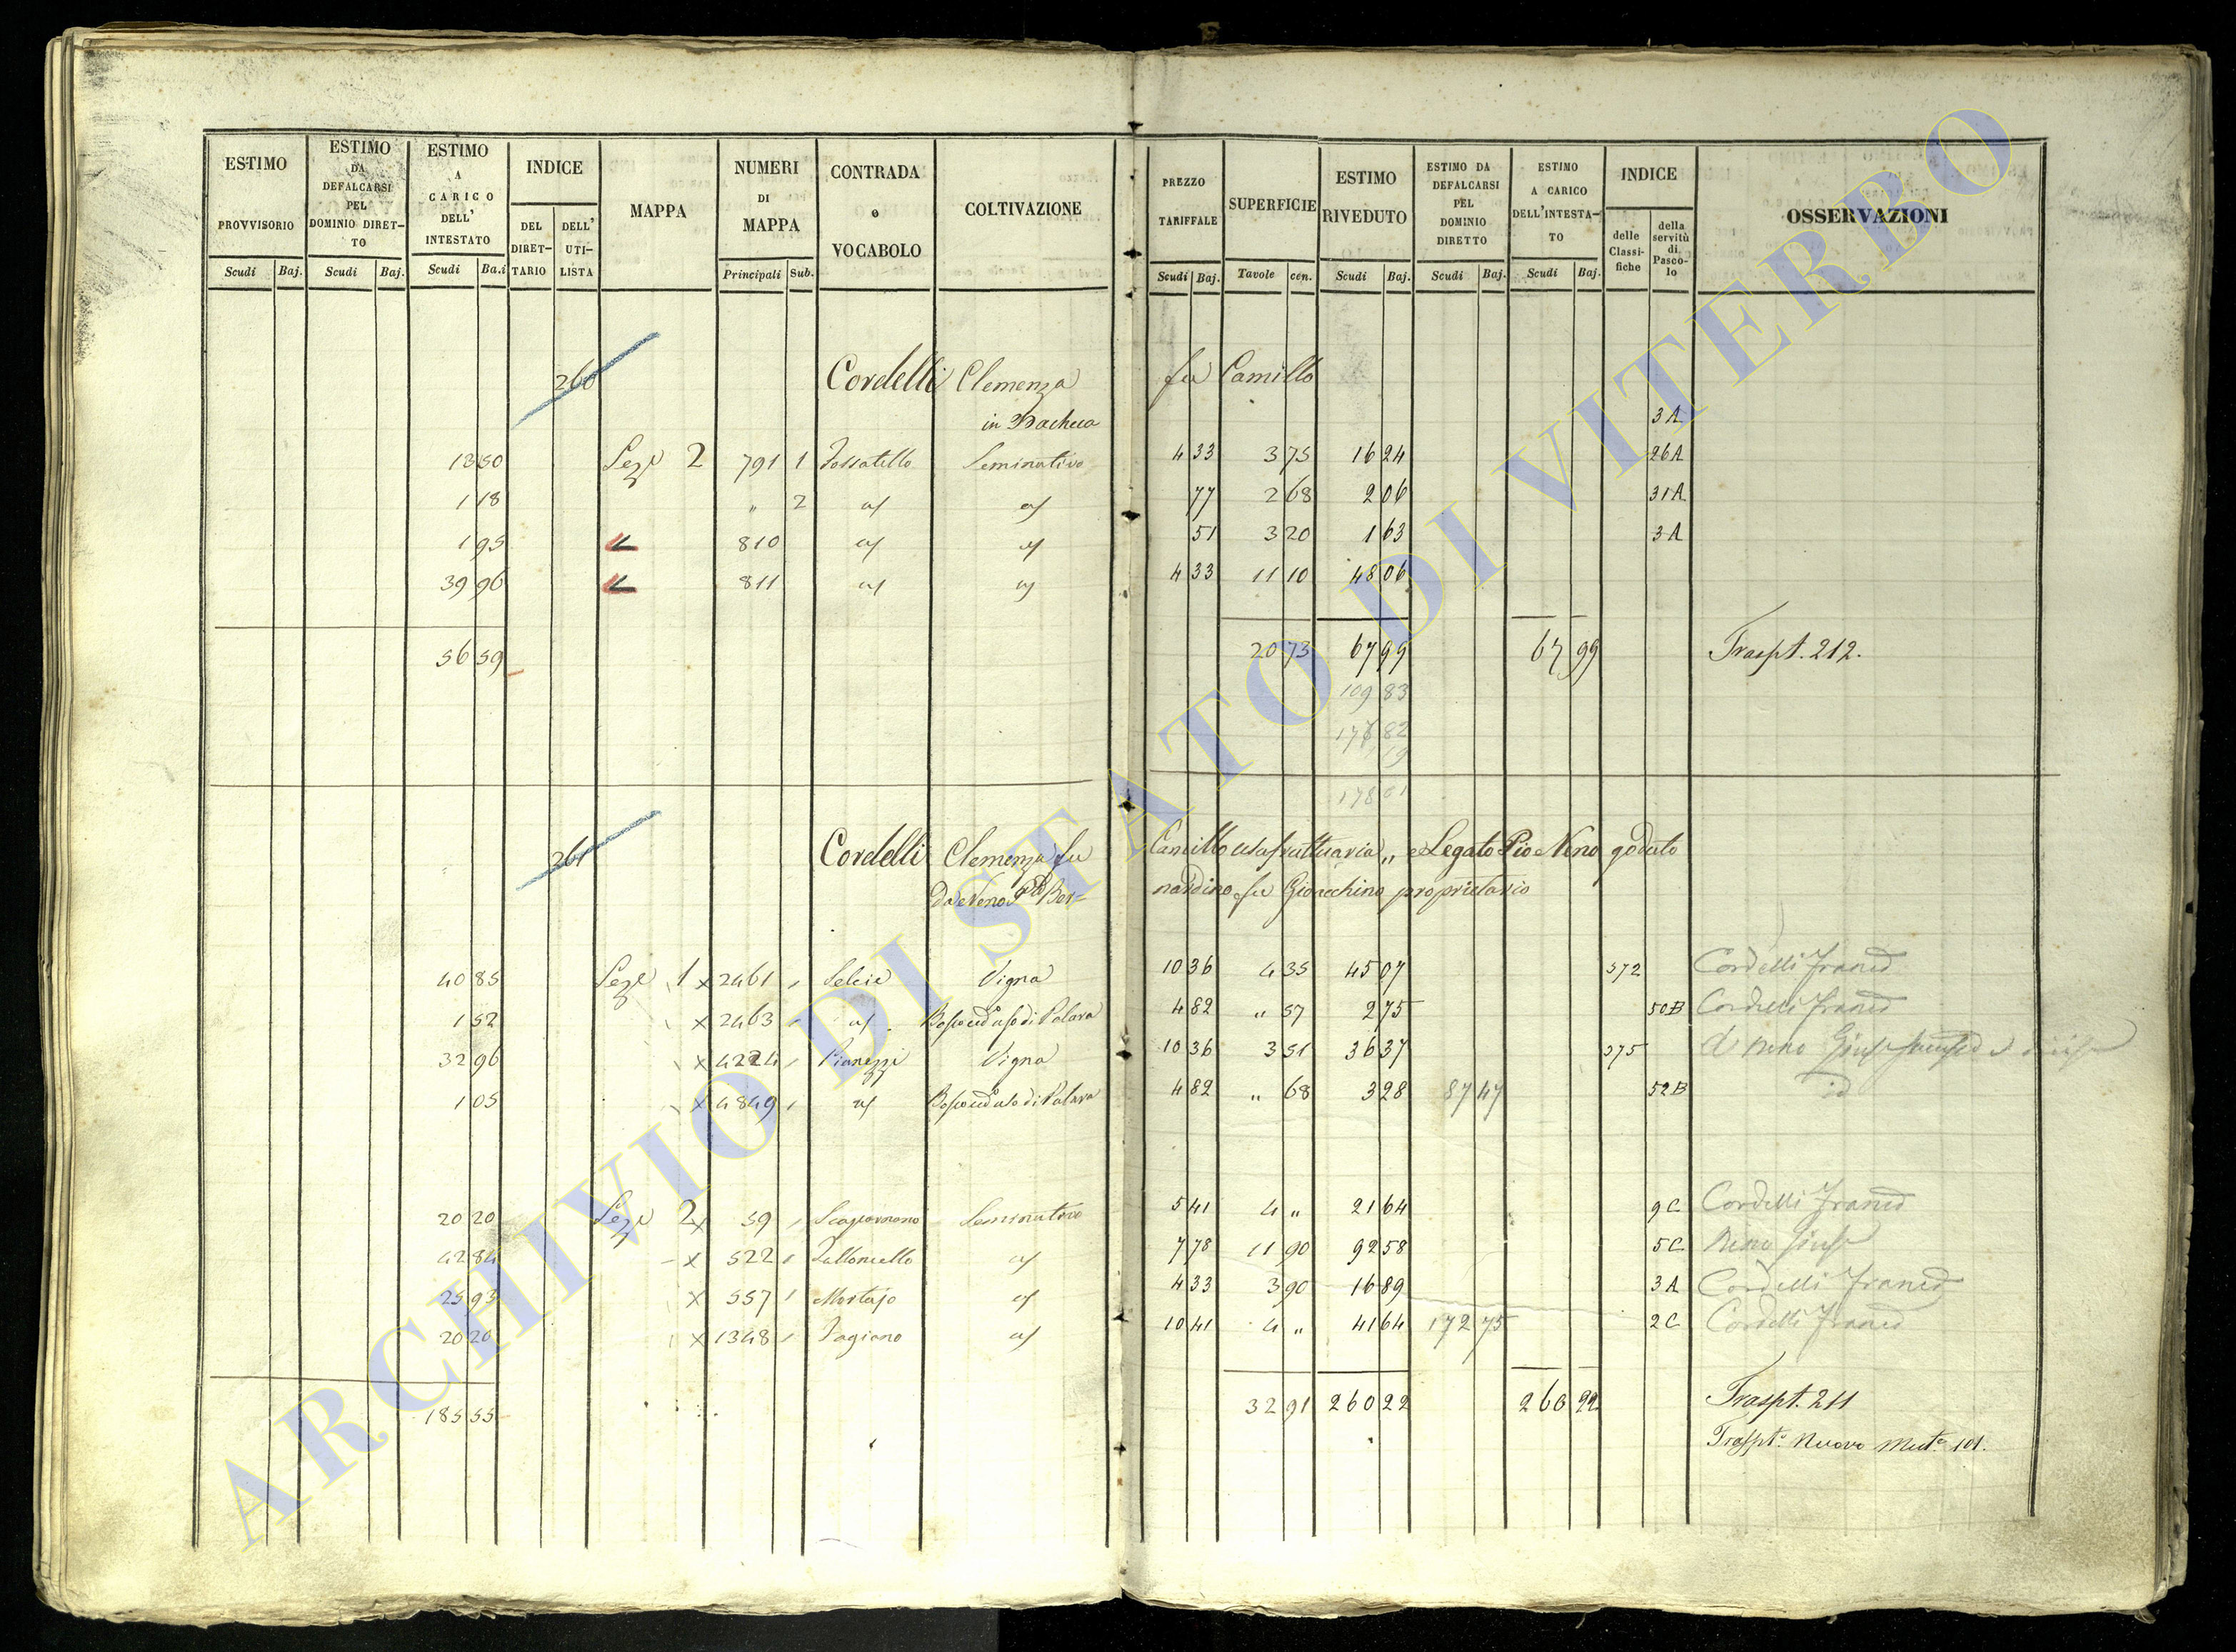 ESTIMO PROVVISORIO Scudi Baj.
ESTIMO DA DEFALCARSI PEL DOMINIO DIRET-TO Scudi Baj.
ESTIMO A CARICO DELL' INTESTATO Scudi Ba.i
INDICE DEL DIRET-TARIO DELL' UTI-LISTA
MAPPA
NUMERI DI MAPPA Principali Sub.
CONTRADA o VOCABOLO
COLTIVAZIONE
PREZZO TARIFFALE Scudi Baj.
SUPERFICIE Tavole cen.
ESTIMO RIVEDUTO Scudi Baj.
ESTIMO DA DEFALCARSI PEL DOMINIO DIRETTO Scudi Baj.
ESTIMO A CARICO DELL'INTESTA-TO Scudi Baj.
INDICE delle Classi-fiche della servitù di Pasco-lo
OSSERVAZIONI
260 Cordelli Clemenza fu Camillo
in Bacheca
3A
13 50 Seze 2 791 1 Fossatello Seminativo 4 33 3 75 16 24 26A
1 18 " 2 77 2 68 2 06 31A
1 95 810 51 3 20 1 63 3A
39 96 811 4 33 11 10 48 06
56 59 20 73 67 99 67 99 Traspt. 212.
109 83
178 82
19
178 01
261 Cordelli Clemenza fu Camillo usufruttuaria „ e Legato Pio Neno goduto
Da Neno Bernardino fu Gioacchino proprietario
40 85 Seze 1 x 2461 Selcie Vigna 10 36 4 35 45 07 572 Cordelli Franco
1 52 x 2463 Bosco ceduo di Palara 4 82 " 57 2 75 50B Cordelli Franco
32 96 x 4224 Pianezzi Vigna 10 36 3 51 36 37 575
1 05 x 4849 Bosco ceduo di Palara 4 82 " 68 3 28 87 47 52B id
20 20 Seze 2 x 59 Seminativo 5 41 4 " 21 64 9C Cordelli Franco
42 84 x 522 7 78 11 90 92 58 5C Neno Gius
25 93 x 557 Mortajo 4 33 3 90 16 89 3A Cordelli Franco
20 20 x 1348 Fagiano 10 41 4 " 41 64 172 75 2C Cordelli Franco
185 55 32 91 260 22 260 22 Traspt. 211
Traspt. Nuovo Mut. 101.
ARCHIVIO DI STATO DI VITERBO